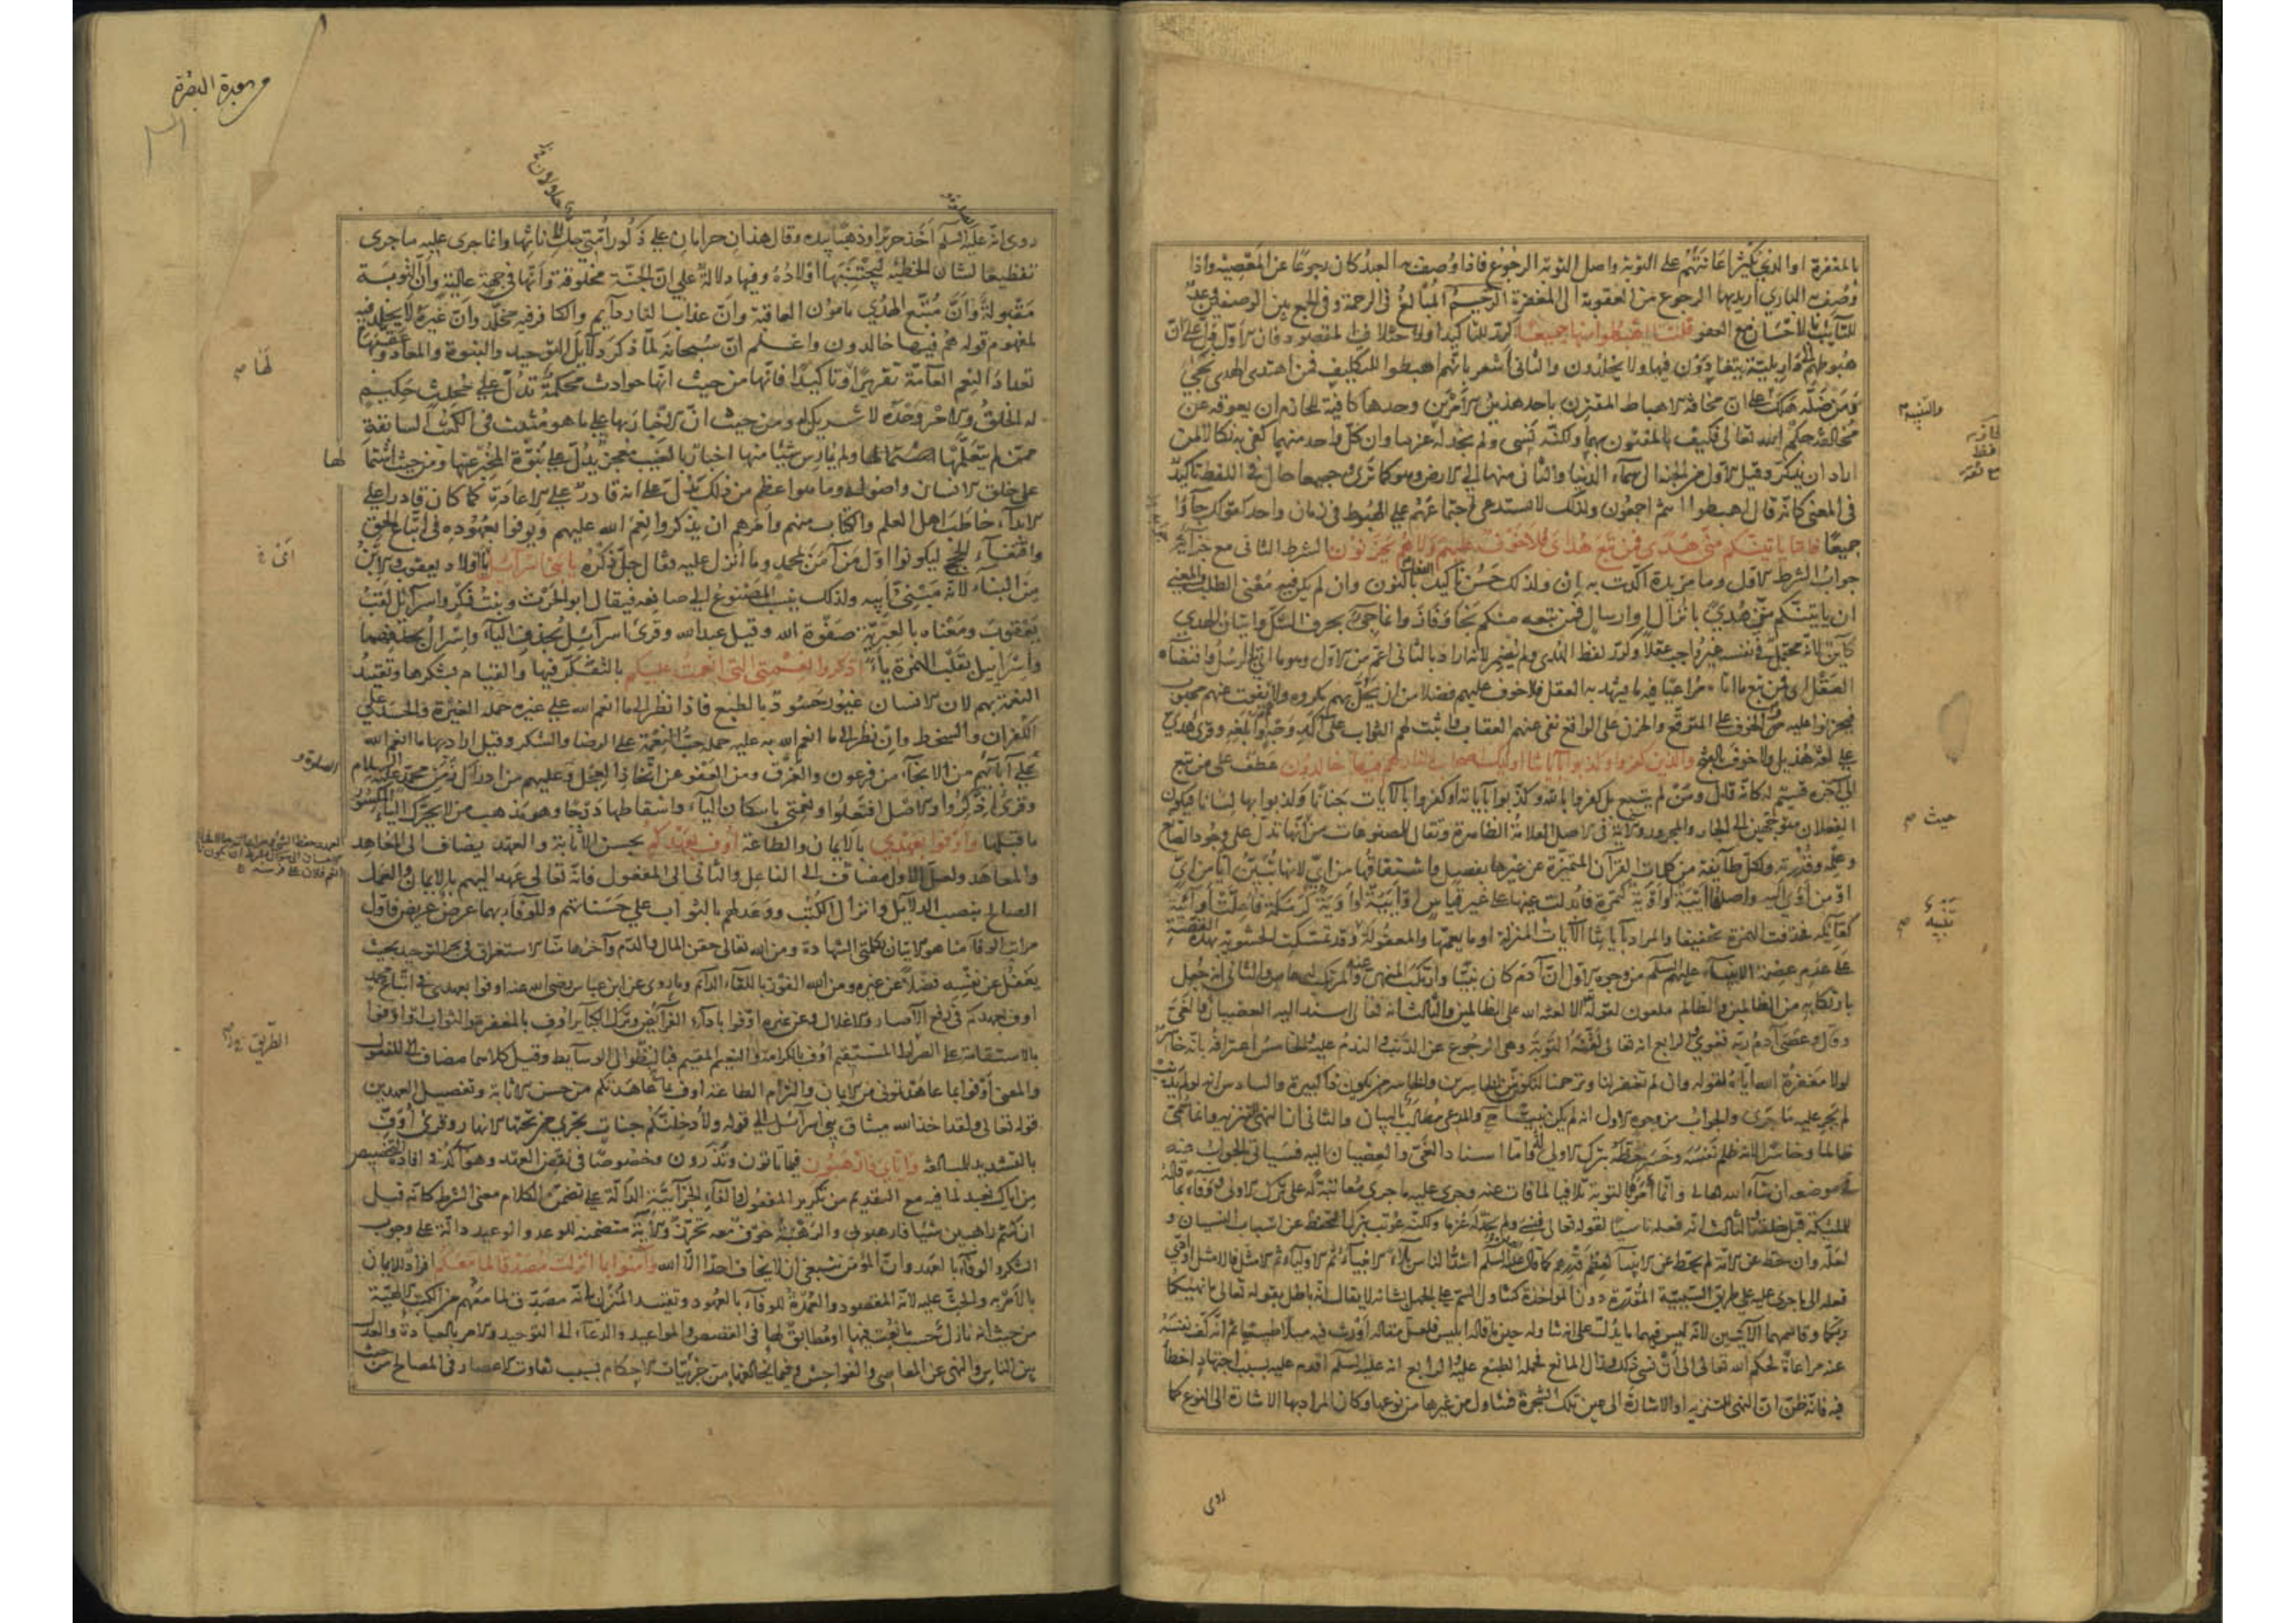 بالمغفرة او الذي يكثر اعانتهم على التوبة واصل التوبة الرجوع فاذا وصف بها العبد كان رجوعا عن المعصية واذا
وصف بها الباري اريد بها الرجوع من العقوبة الى المغفرة الرحيم المبالغ في الرحمة وفي الجمع بين الوصفين وعد
للتائب بالاحسان مع العفو قلنا اهبطوا منها جميعا كرر للتاكيد او لاختلاف المقصود فان الاول دل على ان
هبوطهم الى دار بلية يتعادون فيها ولا يخلدون والثاني اشعر بانهم اهبطوا للتكليف فمن اهتدى الهدى نجى
ومن ضله هلك على ان مخافة الاهباط المقترن باحد هذين الامرين وحدها كافية للحازم ان يعوقه عن
مخالفة حكم الله تعالى فكيف بالمقترن بهما ولكنه نسي ولم نجد له عزما وان كل واحد منهما كفى به نكالا لمن
اراد ان يذكر وقيل الاول من الجنة الى سماء الدنيا والثاني منها الى الارض وهو كما ترى وجميعا حال في اللفظ تاكيد
في المعنى كانه قال اهبطوا انتم اجمعون ولذلك لا يستدعي اجتماعهم على الهبوط في زمان واحد كقولك جاؤا
جميعا فاما ياتينكم مني هدى فمن تبع هداى فلا خوف عليهم ولا هم يحزنون الشرط الثاني مع جزائه
جواب الشرط الاول وما مزيدة اكدت به ان ولذلك حسن تاكيد الفعل بالنون وان لم يكن فيه معنى الطلب والمعنى
ان ياتينكم مني هدى بانزال او ارسال فمن تبعه منكم نجا وفاز وانما جئ بحرف الشك واتيان الهدى
كاين لانه محتمل في نفسه غير واجب عقلا وكرر لفظ الهدى ولم يضمر لانه اراد بالثاني اعم من الاول وهو ما اتى به الرسل واقتضاه
العقل اى فمن تبع ما اتاه مراعيا فيه ما يشهد به العقل فلا خوف عليهم فضلا من ان يحل بهم مكروه ولا يفوت عنهم محبوب
فيحزنوا عليه فالخوف على المتوقع والحزن على الواقع نفى عنهم العقاب واثبت لهم الثواب على آكد وجه وابلغه وقرئ هدي
على لغة هذيل ولا خوف بالفتح والذين كفروا وكذبوا بآياتنا اولئك اصحاب النار هم فيها خالدون عطف على من تبع
الى آخره قسيم له كانه قال ومن لم يتبع بل كفروا بالله وكذبوا بآياته او كفروا بالآيات جنانا وكذبوا بها لسانا فيكون
الفعلان متوجهين الى الجار والمجرور والآية في الاصل العلامة الظاهرة وتقال للمصنوعات من انها تدل على وجود الصانع
وعلمه وقدرته ولكل طائفة من كلمات القرآن المتميزة عن غيرها بفصل واشتقاقها من اي لانها تبين ايا من اي
او من اوى اليه واصلها اية او اوية كتمرة فابدلت عينها على غير قياس او ايية او اوية كرمكة فاعلت او آئية
كقائلة فحذفت الهمزة تخفيفا والمراد بآياتنا الآيات المنزلة او ما يعمها والمعقولة وقد تمسكت الحشوية بهذه القصة
على عدم عصمة الانبياء عليهم السلم من وجوه الاول ان آدم كان نبيا وارتكب المنهي عنه والمرتكب له عاص والثاني انه جعل
بارتكابه من الظالمين والظالم ملعون لقوله الا لعنة الله على الظالمين والثالث انه تعالى اسند اليه العصيان والغي
وقال وعصى آدم ربه فغوى والرابع انه تعالى لقنه التوبة وهي الرجوع عن الذنب والندم عليه والخامس اعترافه بانه خاسر
لولا مغفرة الله اياه لقوله وان لم تغفر لنا وترحمنا لنكونن من الخاسرين والخاسر من يكون ذا كبيرة والسادس انه لو لم يذنب
لم يجر عليه ما جرى والجواب من وجوه الاول انه لم يكن نبيا ح والمدعي مطالب بالبيان والثاني ان النهي للتنزيه وانما سمي
ظالما وخاسرا لانه ظلم نفسه وخسر حظه بترك الاولى له واما اسناد الغي والعصيان اليه فسياتي الجواب عنه
في موضعه ان شاء الله تعالى وانما امر بالتوبة تلافيا لما فات عنه وجرى عليه ما جرى معاتبة له على ترك الاولى ووفاء بما قاله
للملئكة قبل خلقه والثالث انه فعله ناسيا لقوله تعالى فنسي ولم نجد له عزما ولكنه عوتب بترك التحفظ عن اسباب النسيان و
لعله وان حط عن الامة لم يحط عن الانبياء لعظم قدرهم كما قال عليه السلم اشد الناس بلاء الانبياء ثم الاولياء ثم الامثل فالامثل او ادى
فعله الى ما جرى عليه على طريق السببية المقدرة دون المواخذة كتناول السم على الجهل بشانه لا يقال انه باطل بقوله تعالى ما نهيكما
ربكما وقاسمهما الآيتين لانه ليس فيهما ما يدل على ان تناوله حين ما قاله ابليس فلعل مقاله اورث فيه ميلا طبيعيا ثم انه كف نفسه
عنه مراعاة لحكم الله تعالى الى ان نسي ذلك وزال المانع فحمله الطبع عليه الرابع انه عليه السلم اقدم عليه بسبب اجتهاد اخطأ
فيه فانه ظن ان النهي للتنزيه او الاشارة الى عين تلك الشجرة فتناول من غيرها من نوعها وكان المراد بها الاشارة الى النوع كما
روى
والتنبيه
حيث
تنبيه
سورة البقرة
روى انه عليه السلم اخذ حريرا وذهبا بيده وقال هذان حرامان على ذكور امتي حل لاناثها وانما جرى عليه ما جرى
تفظيعا لشان الخطيئة ليجتنبها اولاده وفيها دلالة على ان الجنة مخلوقة وانها في جهة عالية وان التوبة
مقبولة وان متبع الهدى مامون العاقبة وان عذاب النار دآيم والكافر فيه مخلد وان غيره لا يخلد فيه
لمفهوم قوله هم فيها خالدون واعلم ان سبحانه لما ذكر دلايل التوحيد والنبوة والمعاد وعقبها
تعداد النعم العامة تقريرا وتاكيدا فانها من حيث انها حوادث محكمة تدل على محدث حكيم
له الخلق والامر وحده لا شريك له ومن حيث ان الاخبار بها على ما هو مثبت في الكتب السابقة
ممن لم يتعلمها ولم يمارس شيئا منها اخبار بالغيب معجز يدل على نبوة المخبر عنها ومن حيث اشتمالها
على خلق الانسان واصوله وما هو اعظم من ذلك يدل على انه قادر على الاعادة كما كان قادرا على
الابداء خاطب اهل العلم والكتاب منهم وامرهم ان يذكروا نعم الله عليهم ويوفوا بعهوده في اتباع الحق
واقتفاء الحجج ليكونوا اول من آمن بمحمد وما انزل عليه وقال جل ذكره يا بني اسرآئيل يا اولاد يعقوب والابن
من البناء لانه مبنى ابيه ولذلك ينسب المصنوع الى صانعه فيقال ابو الحرث وبنت فكر واسرآئيل لقب
يعقوب ومعناه بالعبرية صفوة الله وقيل عبد الله وقرئ اسرائل بحذف الياء واسرال بحذفهما
واسراييل بقلب الهمزة ياء اذكروا نعمتي التي انعمت عليكم بالتفكر فيها والقيام بشكرها وتقييد
النعمة بهم لان الانسان غيور حسود بالطبع فاذا نظر الى ما انعم الله على غيره حمله الغيرة والحسد على
الكفران والسخط وان نظر الى ما انعم الله به عليه حمله حب النعمة على الرضا والشكر وقيل اراد بها ما انعم الله
على آبائهم من الانجاء من فرعون والغرق ومن العفو عن اتخاذ العجل وعليهم من ادراك زمن محمد عليه السلام
وقرئ اذكروا والاصل افتعلوا ونعمتي باسكان الياء واسقاطها درجا وهو مذهب من لا يحرك الياء المكسور
ما قبلها واوفوا بعهدي بالايمان والطاعة اوف بعهدكم بحسن الاثابة والعهد يضاف الى المعاهِد
والمعاهَد ولعل الاول مضاف الى الفاعل والثاني الى المفعول فانه تعالى عهد اليهم بالايمان والعمل
الصالح بنصب الدلايل وانزال الكتب ووعد لهم بالثواب على حسناتهم وللوفاء بهما عرض عريض فاول
مراتب الوفا منا هو الاتيان بكلمتي الشهادة ومن الله تعالى حقن المال والدم وآخرها منا الاستغراق في بحر التوحيد بحيث
يغفل عن نفسه فضلا عن غيره ومن الله الفوز باللقاء الدآئم وما روى عن ابن عباس رضى الله عنه اوفوا بعهدي في اتباع محمد
اوف بعهدكم في رفع الآصار والاغلال وعن غيره اوفوا باداء الفرآيض وترك الكباير اوف بالمغفرة والثواب او اوفوا
بالاستقامة على الصراط المستقيم اوف بالكرامة والنعيم المقيم فبالنظر الى الوسايط وقيل كلاهما مضاف الى المفعول
والمعنى اوفوا بما عاهدتموني من الايمان والتزام الطاعة اوف بما عاهدتكم من حسن الاثابة وتفصيل العهدين
قوله تعالى ولقد اخذ الله ميثاق بني اسرآئيل الى قوله ولأدخلنكم جنات تجري من تحتها الانهار وقرئ اوف
بالتشديد للمبالغة واياي فارهبون فيما تاتون وتذرون وخصوصا في نقض العهد وهو آكد في افادة التخصيص
من اياك نعبد لما فيه مع التقديم من تكرير المفعول والفاء الجزآئية الدآلة على تضمن الكلام معنى الشرط كانه قيل
ان كنتم راهبين شيئا فارهبوني والرهبة خوف معه تحرز والآية متضمنة للوعد والوعيد دالة على وجوب
الشكر والوفآء بالعهد وان المؤمن ينبغي ان لا يخاف احدا الا الله وآمنوا بما انزلت مصدقا لما معكم افراد للايمان
بالامر به والحث عليه لانه المقصود والعمدة للوفآء بالعهود وتقييد المنزل بانه مصدق لما معهم من الكتب الالهية
من حيث انه نازل حسب ما نعت فيها او مطابق لها في القصص والمواعيد والدعاء الى التوحيد والامر بالعبادة والعدل
بين الناس والنهي عن المعاصي والفواحش وفيما يخالفها من جزئيات الاحكام بسبب تفاوت الاعصار في المصالح من حيث
لها
الطريق